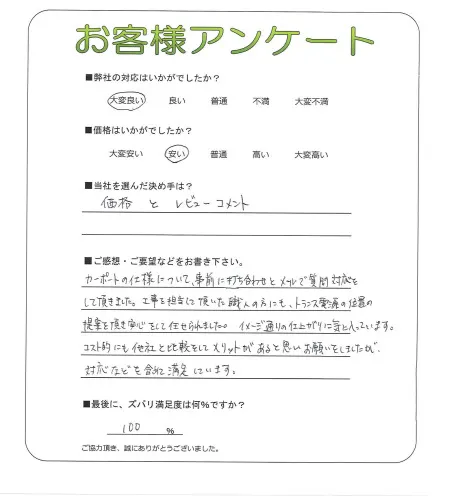 お客様アンケート
■弊社の対応はいかがでしたか?
大変良い 良い 普通 不満 大変不満
■価格はいかがでしたか?
大変安い 安い 普通 高い 大変高い
■当社を選んだ決め手は?
価格 と レビューコメント
■ご感想・ご要望などをお書き下さい。
カーポートの仕様について、事前に打ち合わせとメールで質問対応を
して頂きました。工事を担当して頂いた職人の方にも、トランス電源の位置の
提案を頂き安心をして任せられました。 イメージ通りの仕上がりに気に入っています。
コスト的にも他社と比較をしてメリットがあると思いお願いをしましたが、
対応なども含めて満足しています。
■最後に、ズバリ満足度は何%ですか?
100 %
ご協力頂き、誠にありがとうございました。